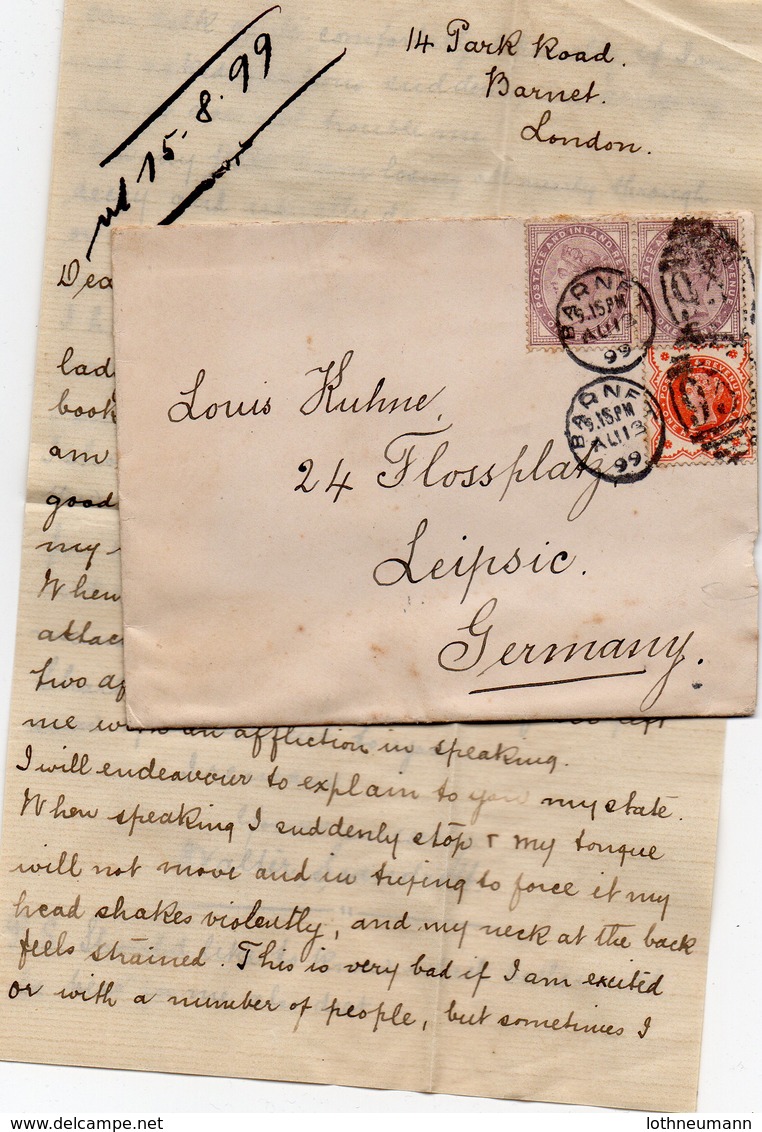 14 Park Road.
Barnet.
London.
15.8.99
Dea
lad
book
am
good
my
When
attac
two
me with an affliction in speaking.
I will endeavour to explain to you my state.
When speaking I suddenly stop & my tongue
will not move and in trying to force it my
head shakes violently, and my neck at the back
feels strained. This is very bad if I am excited
or with a number of people, but sometimes I
POSTAGE AND INLAND RE
BARNET
9.15PM
AU 12
99
BARNET
9.15PM
AU 12
99
Louis Kuhne,
24 Flossplatz,
Leipsic.
Germany.
lothneumann